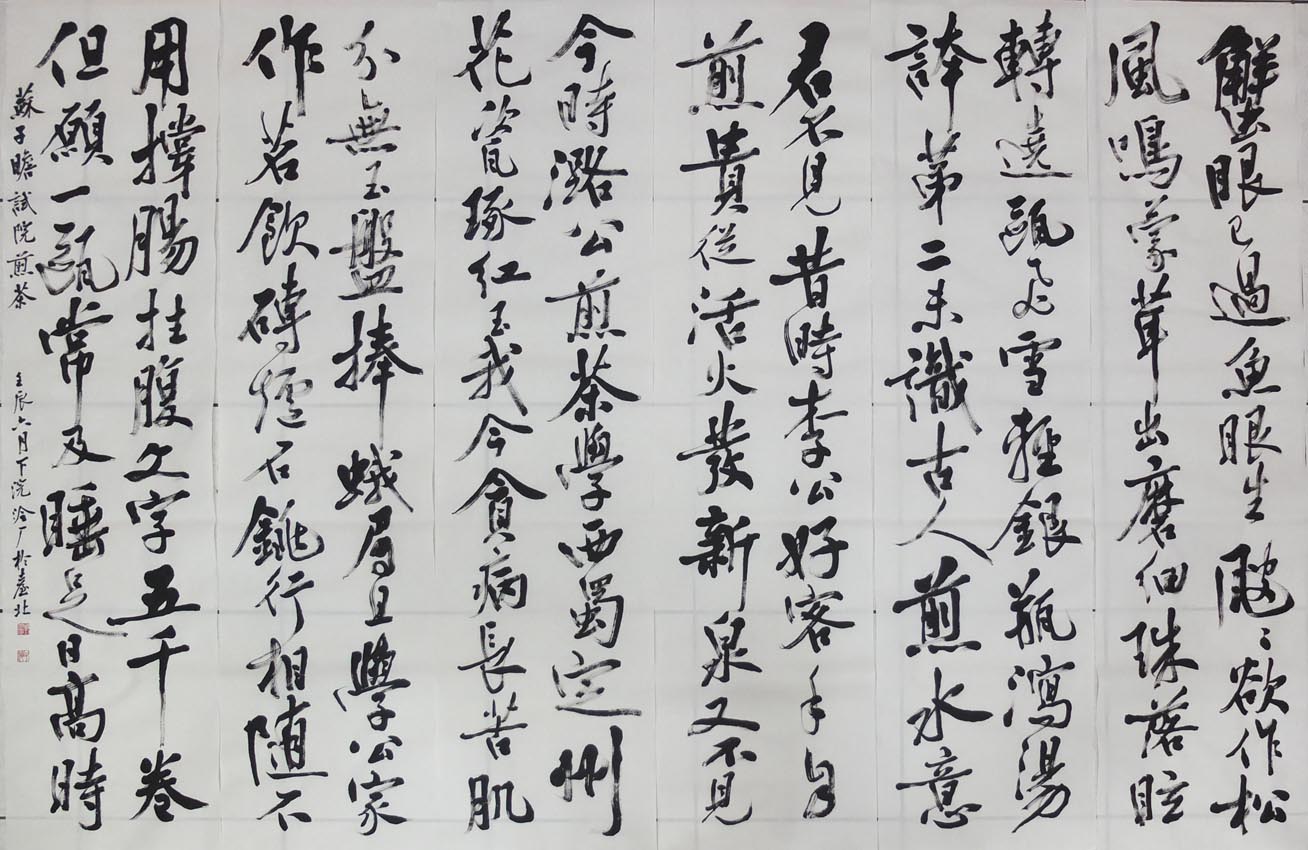 蟹眼已過魚眼生颼〻欲作松
風鳴蒙茸出磨细珠落眩
轉遶甌飛雪輕銀瓶瀉湯
誇第二未識古人煎水意
君不見昔時李公好客手自
煎貴從活火發新泉又不見
今時潞公煎茶學西蜀定州
花瓷琢紅玉我今貪病長苦肌
分無玉盌捧蛾眉且學公家
作茗飲磚爐石銚行相隨不
用撑腸拄腹文字五千卷
但願一甌常及睡足日高時
蘇子瞻試院煎茶
壬辰六月下浣 於臺北